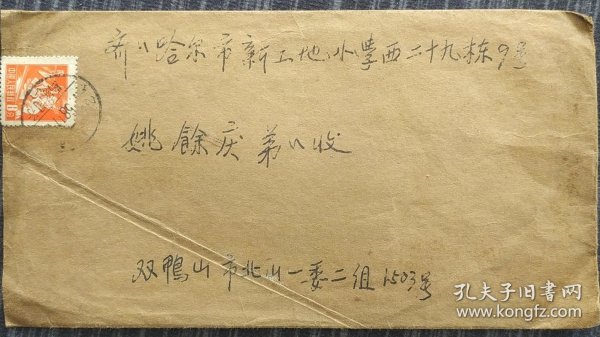 齐八哈尔市新工地小學西二十九栋9号
姚餘庆弟八收
双鴨山市北山一委二组1503号
孔夫子旧书网
www.kongfz.com